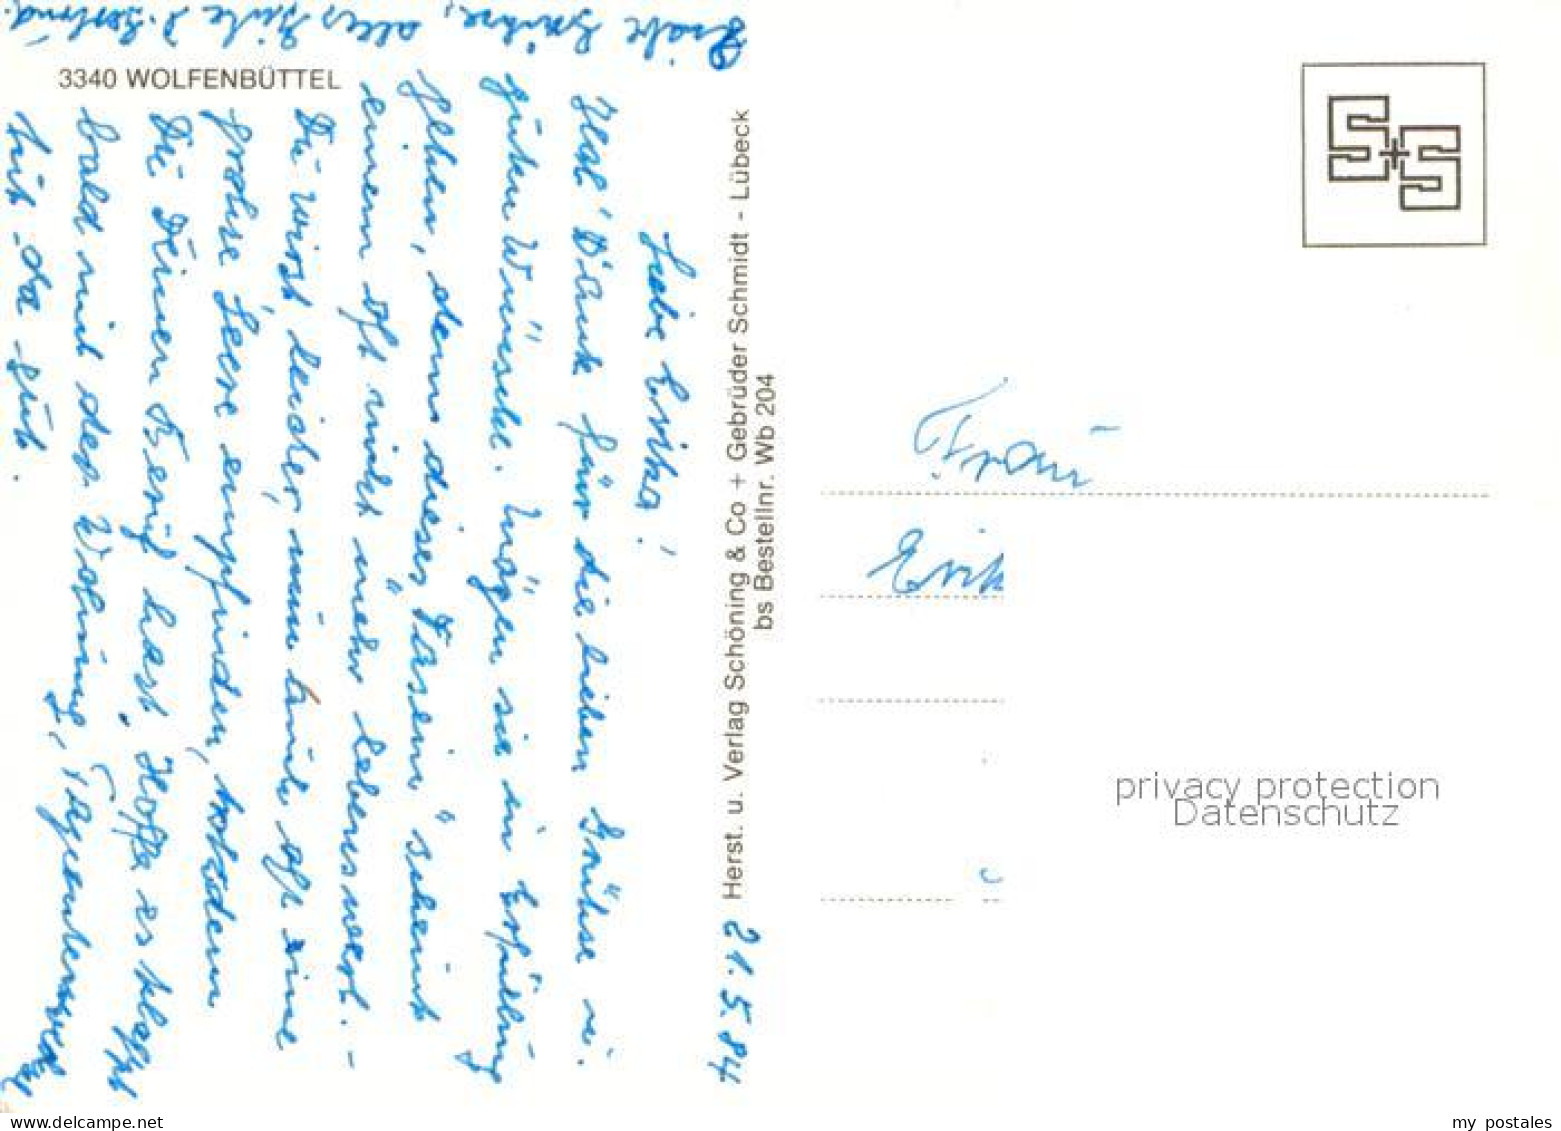 3340 WOLFENBÜTTEL
21.5.84
Liebe Erika!
Hab' Dank für die lieben Grüße u.
guten Wünsche. Mögen sie in Erfüllung
gehen, denn dieses "Dasein" scheint
einem oft nicht mehr lebenswert. -
Du wirst leider, nun auch oft eine
große Leere empfinden, trotzdem
Du Deinen Beruf hast. Hoffe es klappt
bald mit der Wohnung, Tapetenwechsel
tut da gut.
Liebe Grüße, alles Gute D. Gertrud.
Herst. u. Verlag Schöning & Co + Gebrüder Schmidt - Lübeck
bs Bestellnr. Wb 204
S+S
Frau
Erik
privacy protection
Datenschutz
my postales